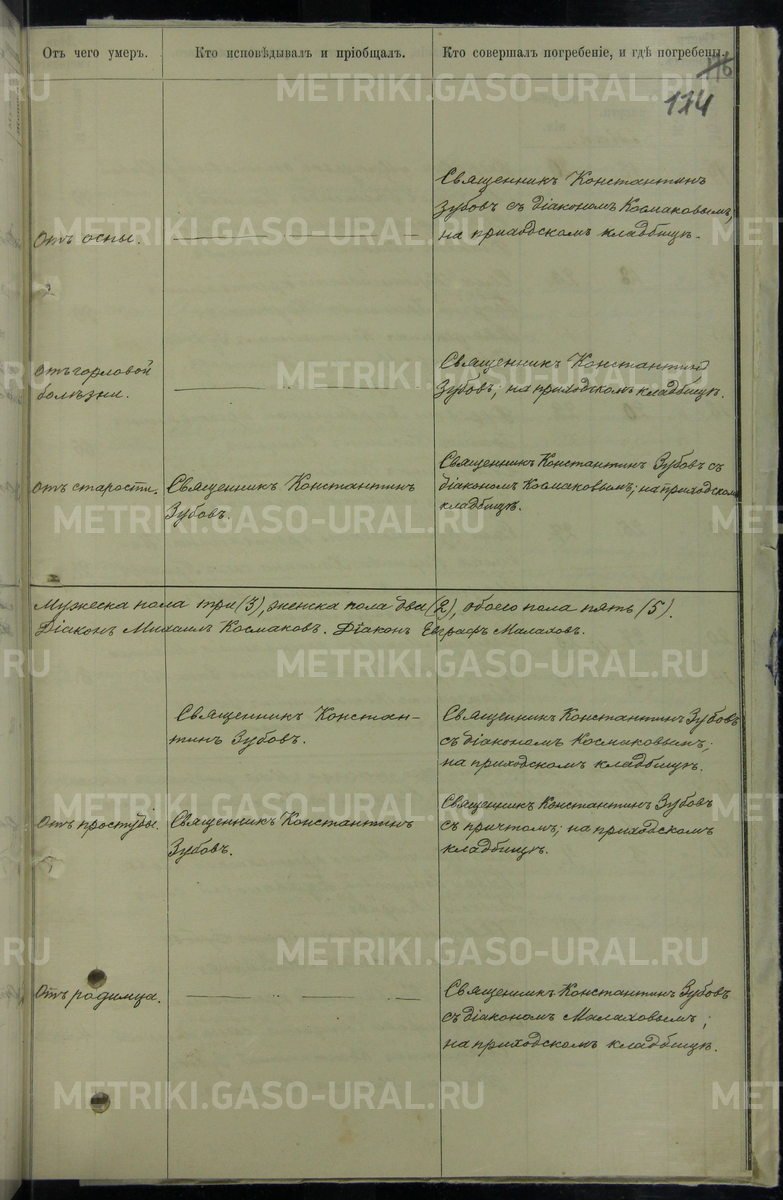 Отъ чего умеръ.
Кто исповѣдывалъ и пріобщалъ.
Кто совершалъ погребеніе, и гдѣ погребены.
116
174
Отъ оспы.
Священникъ Константинъ
Зубовъ съ діакономъ Космаковымъ;
на приходскомъ кладбищѣ.
Отъ горловой
болѣзни.
Священникъ Константинъ
Зубовъ; на приходскомъ кладбищѣ.
Отъ старости.
Священникъ Константинъ
Зубовъ.
Священникъ Константинъ Зубовъ съ
діакономъ Космаковымъ; на приходскомъ
кладбищѣ.
Мужеска пола три (3), женска пола два (2), обоего пола пять (5).
Діаконъ Михаилъ Космаковъ. Діаконъ Евграфъ Малаховъ.
Священникъ Констан-
тинъ Зубовъ.
Священникъ Константинъ Зубовъ
съ діакономъ Космаковымъ;
на приходскомъ кладбищѣ.
Отъ простуды.
Священникъ Константинъ
Зубовъ.
Священникъ Константинъ Зубовъ
съ причтомъ; на приходскомъ
кладбищѣ.
Отъ родимца.
Священникъ Константинъ Зубовъ
съ діакономъ Малаховымъ;
на приходскомъ кладбищѣ.
METRIKI.GASO-URAL.RU